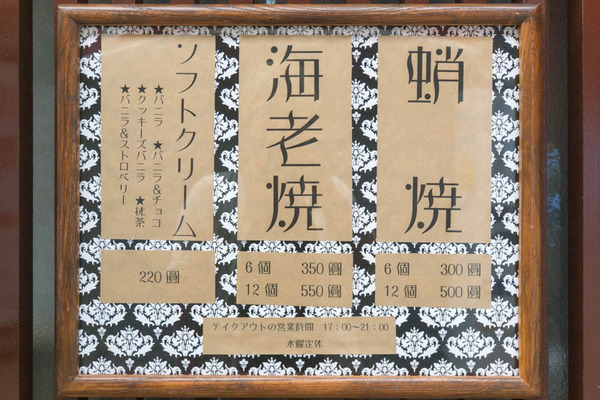 蛸焼
6個 300圓
12個 500圓
海老焼
6個 350圓
12個 550圓
ソフトクリーム
★バニラ ★バニラ&チョコ
★クッキーズバニラ ★抹茶
★バニラ&ストロベリー
220圓
テイクアウトの営業時間 17:00〜21:00
水曜定休